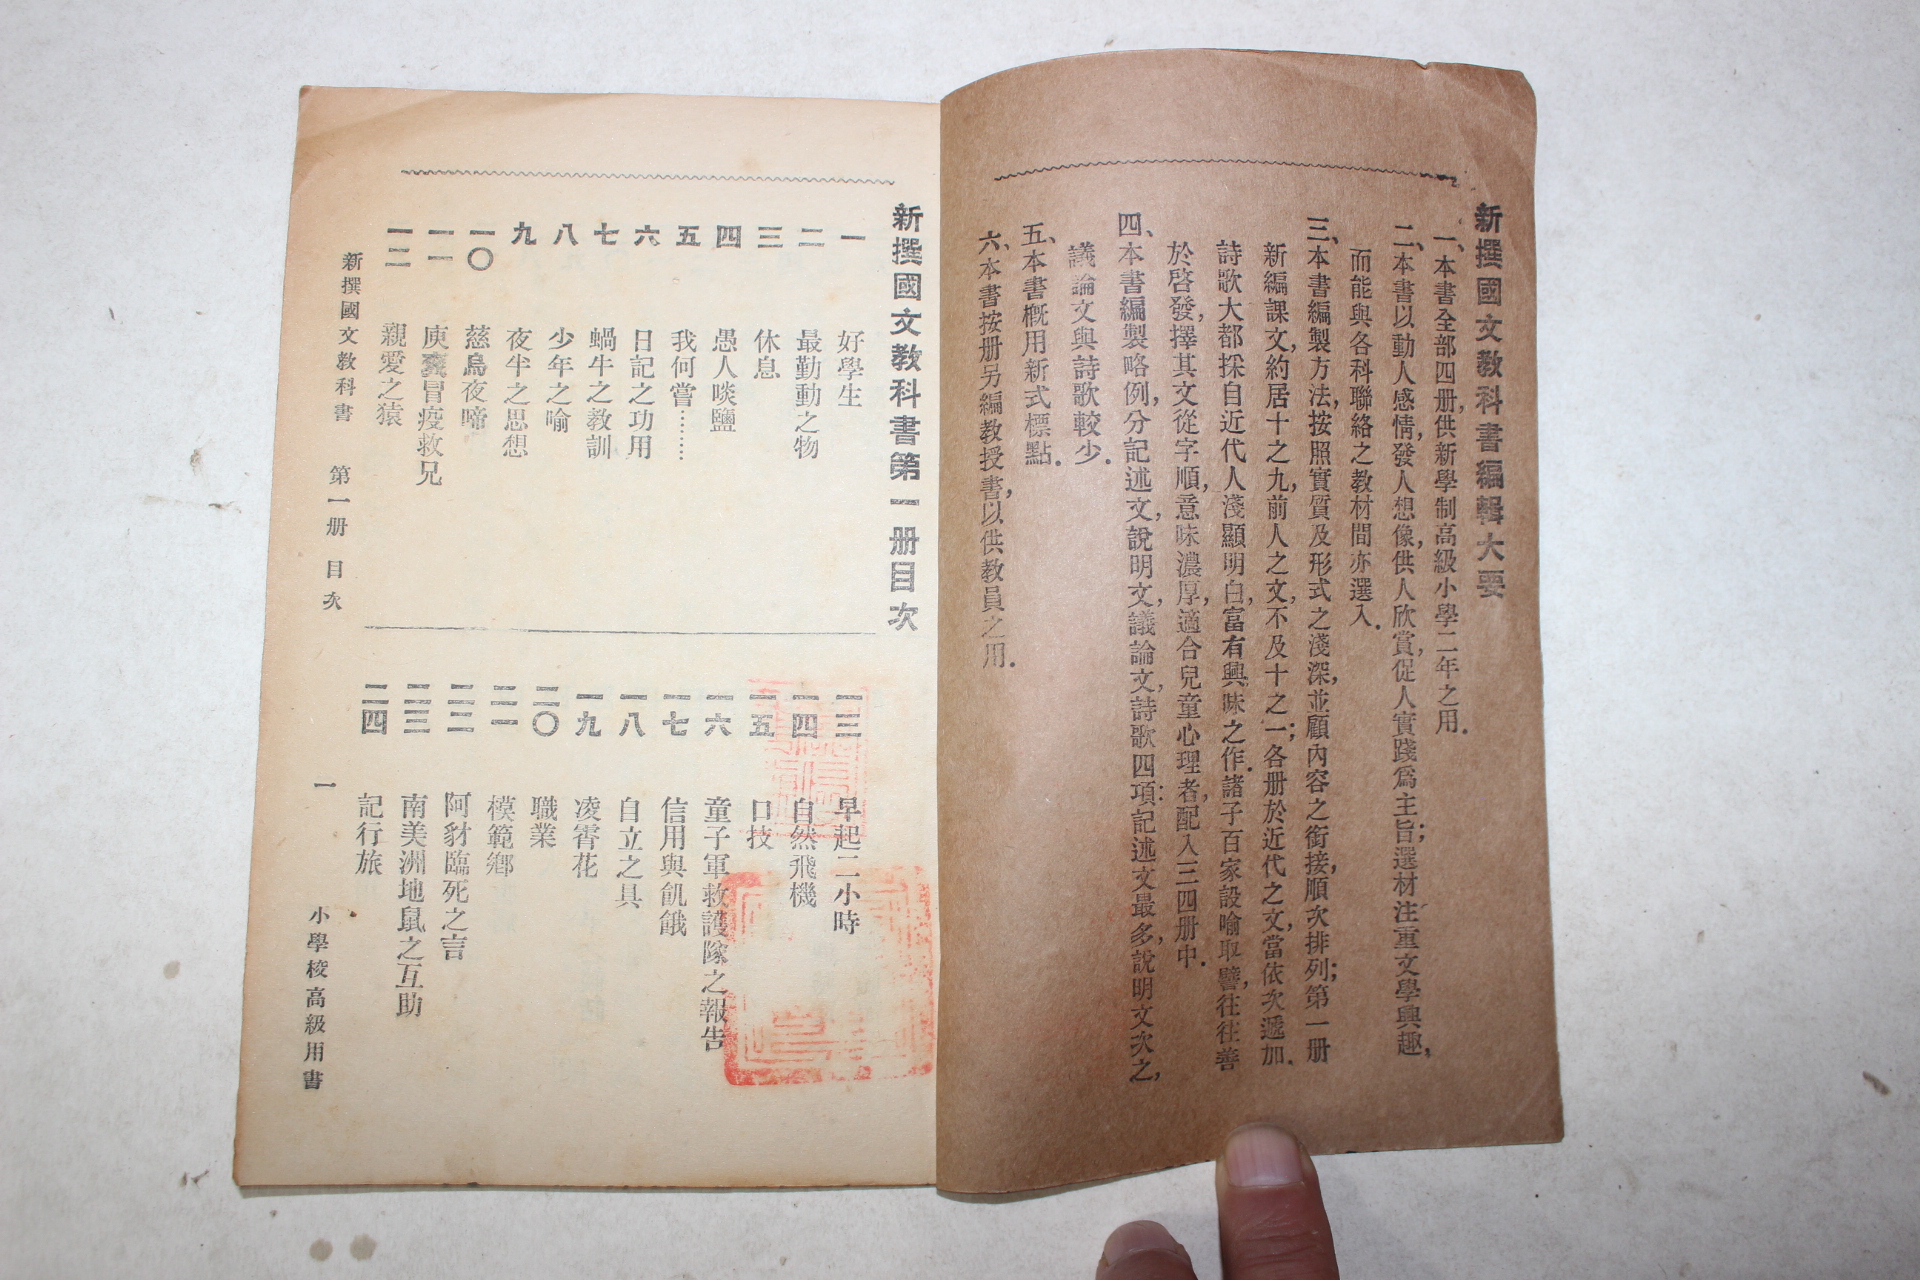 新撰國文教科書編輯大要
一、本書全部四册，供新學制高級小學二年之用．
二、本書以動人感情，發人想像，供人欣賞，促人實踐爲主旨；選材注重文學興趣，
而能與各科聯絡之教材間亦選入．
三、本書編製方法，按照實質及形式之淺深，並顧內容之銜接，順次排列；第一册
新編課文，約居十之九，前人之文，不及十之一；各册於近代之文，當依次遞加．
詩歌大都採自近代人淺顯明白，富有興味之作．諸子百家設喻取譬，往往善
於啓發，擇其文從字順，意味濃厚，適合兒童心理者，配入三四册中．
四、本書編製略例，分記述文，說明文，議論文，詩歌四項：記述文最多，說明文次之，
議論文與詩歌較少．
五、本書概用新式標點．
六、本書按册另編教授書，以供教員之用．
新撰國文教科書第一册目次
一 好學生
二 最勤動之物
三 休息
四 愚人啖鹽
五 我何嘗………
六 日記之功用
七 蝸牛之教訓
八 少年之喻
九 夜半之思想
一〇 慈烏夜啼
一一 庾袞冒疫救兄
一二 親愛之猿
一三 早起二小時
一四 自然飛機
一五 口技
一六 童子軍救護隊之報告
一七 信用與飢餓
一八 自立之具
一九 凌霄花
二〇 職業
二一 模範鄉
二二 阿豺臨死之言
二三 南美洲地鼠之互助
二四 記行旅
新撰國文教科書 第一册 目次 一 小學校高級用書